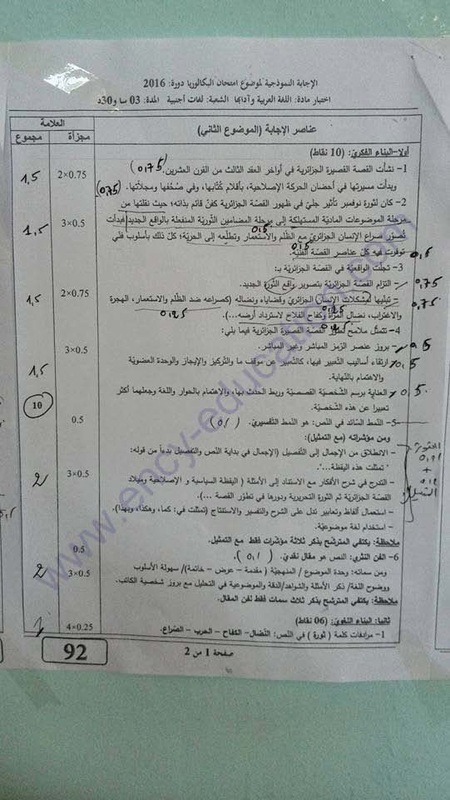 الإجابة النموذجية لموضوع امتحان البكالوريا دورة: 2016
اختبار مادة: اللغة العربية وآدابها الشعبة: لغات أجنبية المدة: 03 سا و30د
العلامة
عناصر الإجابة (الموضوع الثاني)
مجزأة
مجموع
أولا-البناء الفكري: (10 نقاط)
1- نشأت القصة القصيرة الجزائرية في أواخر العقد الثالث من القرن العشرين. (0,75)
2×0.75
1,5
وبدأت مسيرتها في أحضان الحركة الإصلاحية، بأقلام كُتّابها، وفي صُحُفها ومجلاتها. (0,75)
2- كان لثورة نوفمبر تأثير جليّ في ظهور القصة الجزائرية كفنّ قائم بذاته؛ حيث نقلتها من
مرحلة الموضوعات المادية المستهلكة إلى مرحلة المضامين الثورية المنفعلة بالواقع الجديد فبدأت
3×0.5
1,5
تُصوّر صراع الإنسان الجزائري مع الظلم والاستعمار وتطلّعه إلى الحرية؛ كلّ ذلك بأسلوب فنّي
0,5
توفرت فيه كلّ عناصر القصة الفنية.
0,5
3- تجلّت الواقعية في القصة الجزائرية بـ:
- التزام القصة الجزائرية بتصوير واقع الثورة الجديد.
0,75
- تبنّيها لمشكلات الإنسان الجزائري وقضاياه ونضاله (كصراعه ضد الظلم والاستعمار، الهجرة
0,75
2×0.75
1,5
والاغتراب، نضال المرأة وكفاح الفلاح لاسترداد أرضه...).
0,25
4- تتمثل ملامح تطوّر القصة القصيرة الجزائرية فيما يلي:
- بروز عنصر الرمز المباشر وغير المباشر.
0,5
3×0.5
- ارتقاء أساليب التعبير فيها، كالتعبير عن موقف ما والتركيز والإيجاز والوحدة العضوية
0,5
1,5
والاهتمام بالنهاية.
- العناية برسم الشخصية القصصية وربط الحدث بها، والاهتمام بالحوار واللغة وجعلهما أكثر
0,5
تعبيرا عن هذه الشخصية.
10
5- النمط السائد في النص: هو النمط التفسيري.
0.5
ومن مؤشراته (مع التمثيل):
- الانطلاق من الإجمال إلى التفصيل (الإجمال في بداية النص والتفصيل بدءاً من قوله:
"تمثلت هذه اليقظة...".
- التدرج في شرح الأفكار مع الاستناد إلى الأمثلة (اليقظة السياسية و الإصلاحية وميلاد
3×0.5
2
القصة الجزائرية ثم الثورة التحريرية ودورها في تطور القصة ...).
- استعمال ألفاظ وتعابير تدل على الشرح والتفسير والاستنتاج (تمثلت في: كما، وهكذا، وبهذا).
- استخدام لغة موضوعية.
ملاحظة: يكتفي المترشح بذكر ثلاثة مؤشرات فقط مع التمثيل.
6- الفن النثري: النص هو مقال نقدي.
0.5
ومن سماته: وحدة الموضوع / المنهجية (مقدمة – عرض – خاتمة)/ سهولة الأسلوب
3×0.5
2
ووضوح اللغة/ ذكر الأمثلة والشواهد/الدقة والموضوعية في التحليل مع بروز شخصية الكاتب.
ملاحظة: يكتفي المترشح بذكر ثلاث سمات فقط لفن المقال.
ثانيا: البناء اللغوي: (06 نقاط)
1- مرادفات كلمة (ثورة) في النص: النضال- الكفاح – الحرب – الصراع.
4×0.25
1
صفحة 1 من 2
92
www.ency-education.com